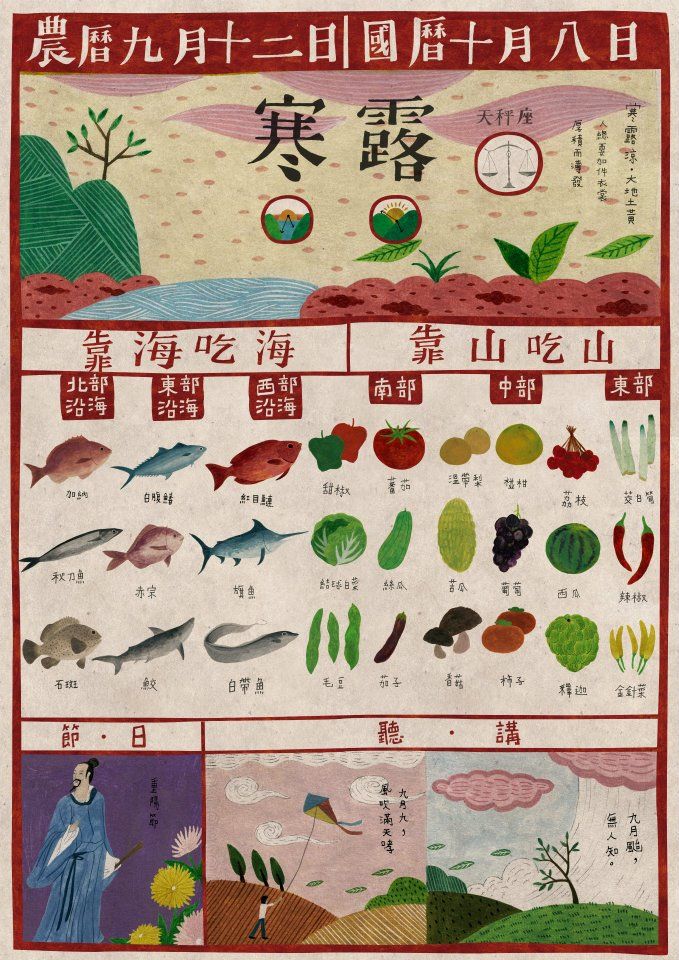 農曆九月十二日 國曆十月八日
寒露
天秤座
寒露涼·大地土黃
人總要加件衣裳
厚積而薄發
靠海吃海
靠山吃山
北部沿海
東部沿海
西部沿海
南部
中部
東部
加納
白腹鯖
紅目鰱
甜椒
蕃茄
溫帶梨
椪柑
荔枝
茭白筍
秋刀魚
赤宗
旗魚
結球白菜
絲瓜
苦瓜
葡萄
西瓜
辣椒
石斑
鮫
白帶魚
毛豆
茄子
香菇
柿子
釋迦
金針菜
節·日
聽·講
重陽節
九月九，
風吹滿天哮
九月颱，
無人知。